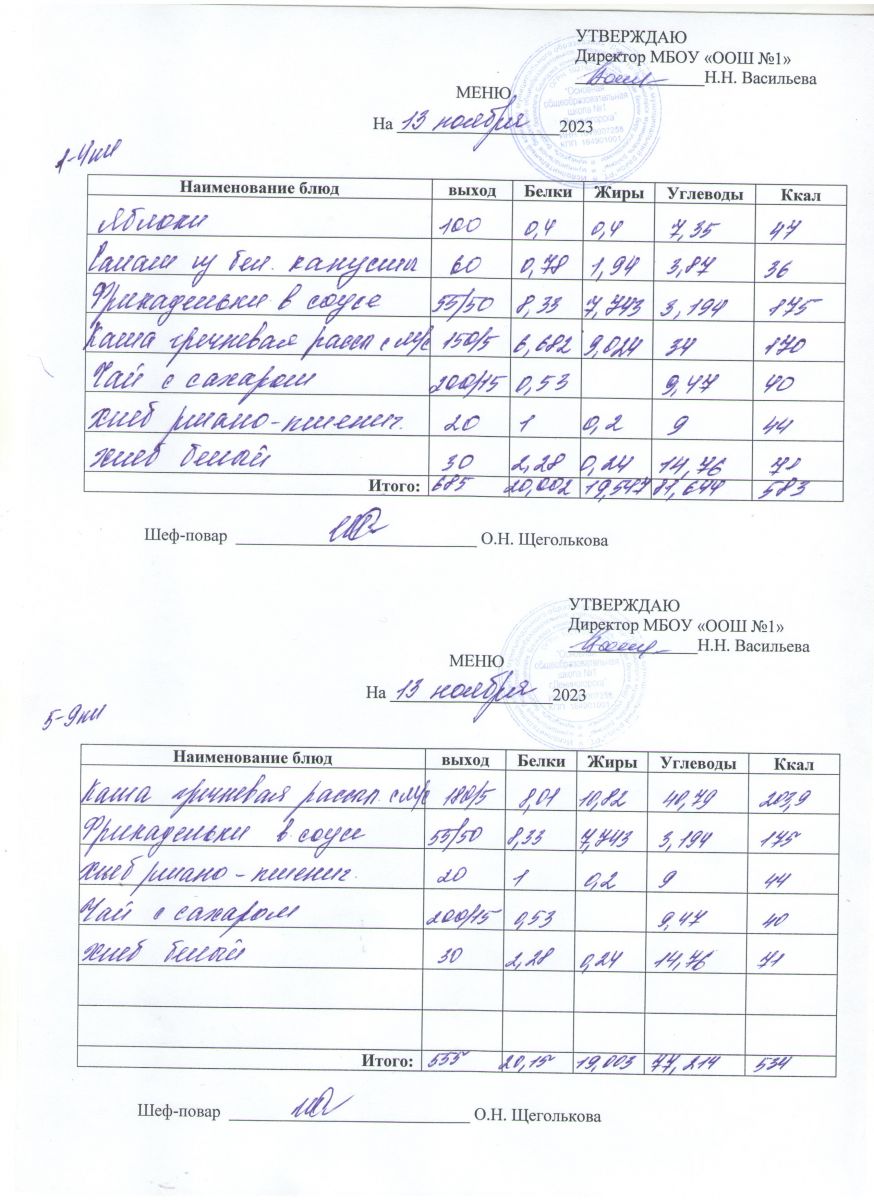 УТВЕРЖДАЮ
Директор МБОУ «ООШ №1»
Н.Н. Васильева
МЕНЮ
На 13 ноября 2023
"Основная
общеобразовательная
школа №1
1-4 кл
Наименование блюд выход Белки Жиры Углеводы Ккал
Яблоки 100 0,4 0,4 7,35 47
Салат из бел. капусты 60 0,78 1,94 3,87 36
Фрикадельки в соусе 55/50 8,33 7,743 3,194 175
Каша гречневая рассп с м/с 150/5 6,682 9,024 34 170
Чай с сахаром 200/15 0,53 9,47 40
хлеб ржано-пшенич. 20 1 0,2 9 44
хлеб белый 30 2,28 0,24 14,76 71
Итого: 685 20,002 19,547 81,644 583
Шеф-повар О.Н. Щеголькова
УТВЕРЖДАЮ
Директор МБОУ «ООШ №1»
Н.Н. Васильева
МЕНЮ
На 13 ноября 2023
"Основная
общеобразовательная
школа №1
г.Лениногорска"
5-9 кл
Наименование блюд выход Белки Жиры Углеводы Ккал
Каша гречневая рассып. с м/с 180/5 8,01 10,82 40,79 203,9
Фрикадельки в соусе 55/50 8,33 7,743 3,194 175
хлеб ржано-пшенич. 20 1 0,2 9 44
Чай с сахаром 200/15 0,53 9,47 40
хлеб белый 30 2,28 0,24 14,76 71
Итого: 555 20,15 19,003 77,214 534
Шеф-повар О.Н. Щеголькова